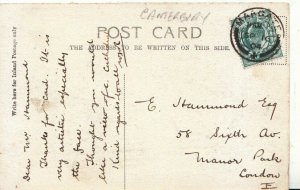 CANTERBURY
POST CARD
THE ADDRESS TO BE WRITTEN ON THIS SIDE.
Write here for Inland Postage only
Dear Mr Hammond
Thanks for card. It is
very artistic especially
the face.
Thought you would
like a view of the Cathedral
Kind regards to all
E Hammond Esq
58 Sixth Av.
Manor Park
London
E